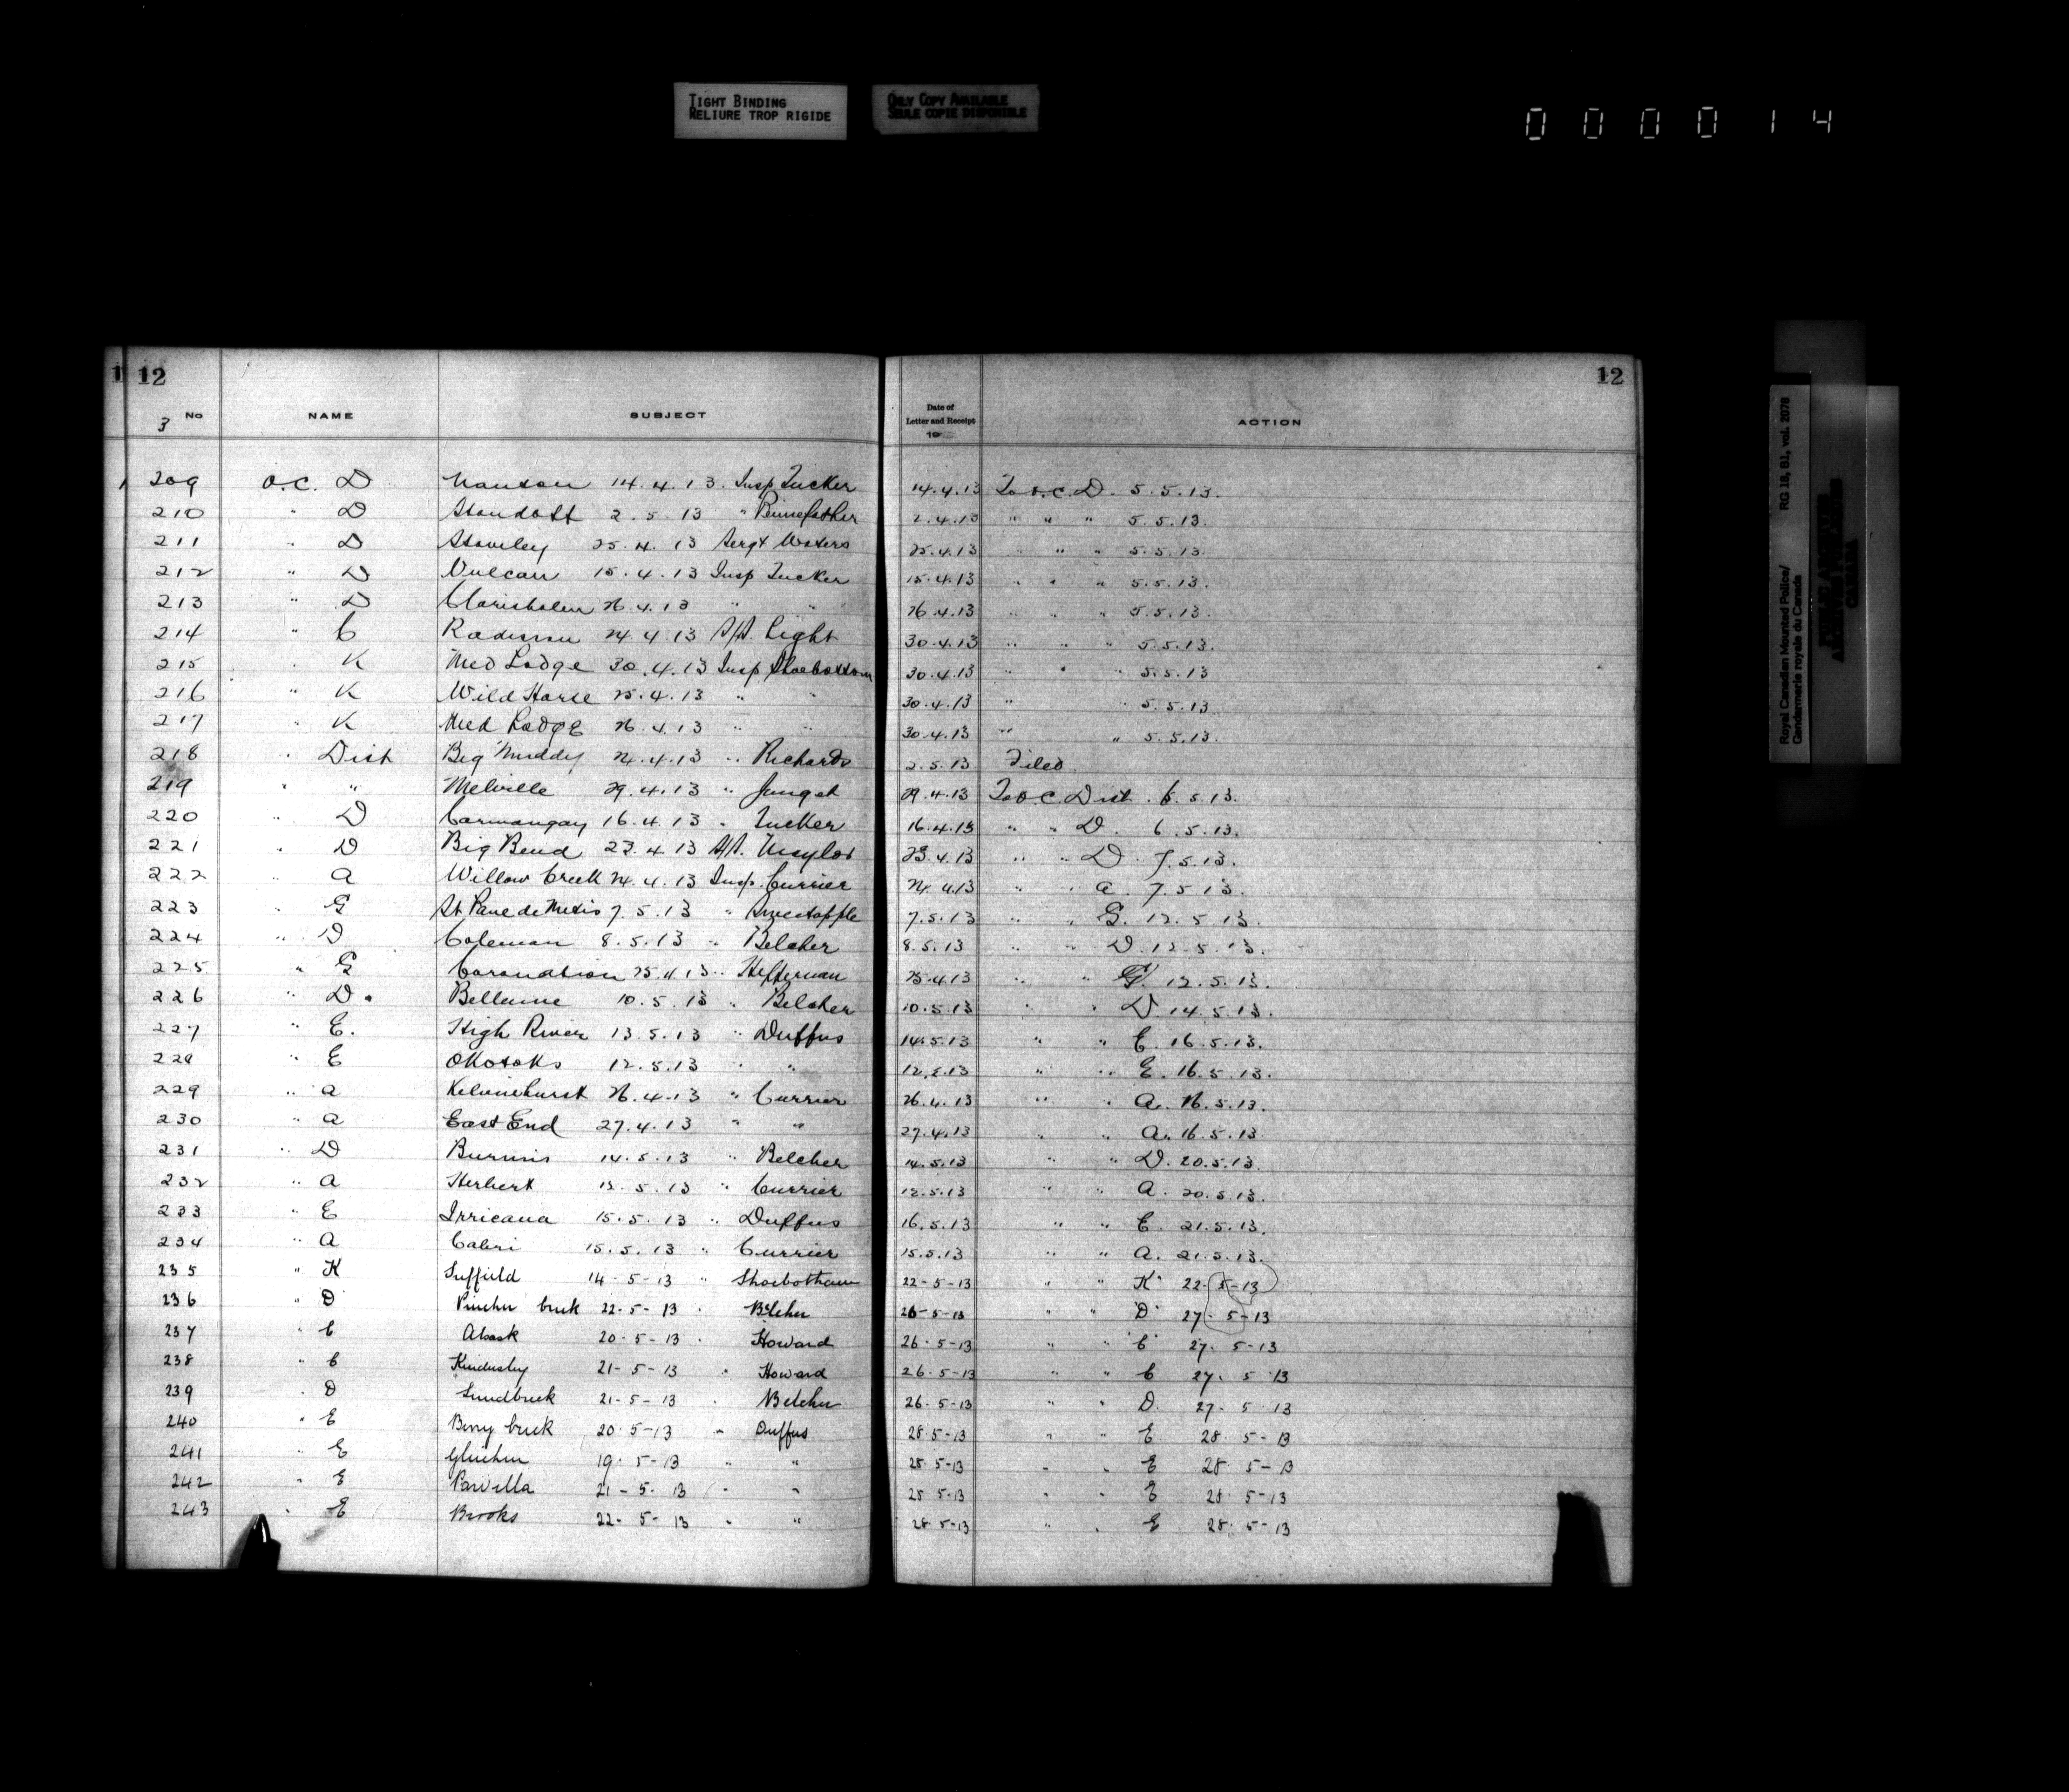 TIGHT BINDING
RELIURE TROP RIGIDE
ONLY COPY AVAILABLE
SEULE COPIE DISPONIBLE
000014
12 12
3 No NAME SUBJECT Date of Letter and Receipt 19 ACTION
209 O.C. D Nanton 14.4.13. Insp Tucker 14.4.13 To O.C. D. 5.5.13.
210 " D Standoff 2.5.13 " Pennefather 2.4.13 " " " 5.5.13.
211 " D Staveley 25.4.13 Sergt Waters 25.4.13 " " " 5.5.13.
212 " D Vulcan 15.4.13 Insp Tucker 15.4.13 " " " 5.5.13.
213 " D Claresholm 26.4.13 " " 26.4.13 " " " 5.5.13.
214 " C Radisson 24.4.13 S/S. Light 30.4.13 " " " 5.5.13.
215 " K Med Lodge 30.4.13 Insp Shoebottom 30.4.13 " " " 5.5.13
216 " K Wild Horse 25.4.13 " " 30.4.13 " " 5.5.13.
217 " K Med Lodge 26.4.13 " " 30.4.13 " " 5.5.13.
218 " Dist Big Muddy 24.4.13 " Richards 2.5.13 Filed
219 " " Melville 29.4.13 " Junget 29.4.13 To O.C. Dist. 6.5.13.
220 " D Carmangay 16.4.13 " Tucker 16.4.13 " " D. 6.5.13.
221 " D Big Bend 23.4.13 S/S. Naylor 23.4.13 " " D. 7.5.13.
222 " A Willow Creek 24.4.13 Insp. Currier 24.4.13 " " A. 7.5.13.
223 " G St Paul de Metis 7.5.13 " Sweetapple 7.5.13 " " G. 12.5.13.
224 " D Coleman 8.5.13 " Belcher 8.5.13 " " D. 12.5.13.
225 " G Coronation 25.4.13 " Heffernan 25.4.13 " " G. 12.5.13.
226 " D. Bellevue 10.5.13 " Belcher 10.5.13 " D. 14.5.13.
227 " E. High River 13.5.13 " Duffus 14.5.13 " " E. 16.5.13.
228 " E Okotoks 12.5.13 " " 12.5.13 " " E. 16.5.13.
229 " A Kelvinhurst 26.4.13 " Currier 26.4.13 " " A. 16.5.13.
230 " A East End 27.4.13 " " 27.4.13 " " A. 16.5.13.
231 " D Burmis 14.5.13 " Belcher 14.5.13 " " D. 20.5.13.
232 " A Herbert 12.5.13 " Currier 12.5.13 " " A. 20.5.13.
233 " E Irricana 15.5.13 " Duffus 16.5.13 " " E. 21.5.13.
234 " A Cabri 15.5.13 " Currier 15.5.13 " " A. 21.5.13.
235 " K Suffield 14-5-13 " Shoebotham 22-5-13 " " K 22-5-13
236 " D Pincher Creek 22-5-13 " Belcher 26-5-13 " " D 27-5-13
237 " C Alsask 20-5-13 " Howard 26-5-13 " " C 27-5-13
238 " C Kindersley 21-5-13 " Howard 26-5-13 " " C 27-5-13
239 " D Lundbreck 21-5-13 " Belcher 26-5-13 " " D. 27-5-13
240 " E Berry Creek 20-5-13 " Duffus 28-5-13 " " E 28-5-13
241 " E Gleichen 19-5-13 " " 28-5-13 " " E 28-5-13
242 " E 21-5-13 " " 28-5-13 " " E 28-5-13
243 " E Brooks 22-5-13 " " 28-5-13 " " E 28-5-13
Royal Canadian Mounted Police/ RG 18, B1, vol. 2078
Gendarmerie royale du Canada
PUBLIC ARCHIVES
ARCHIVES PUBLIQUES
CANADA